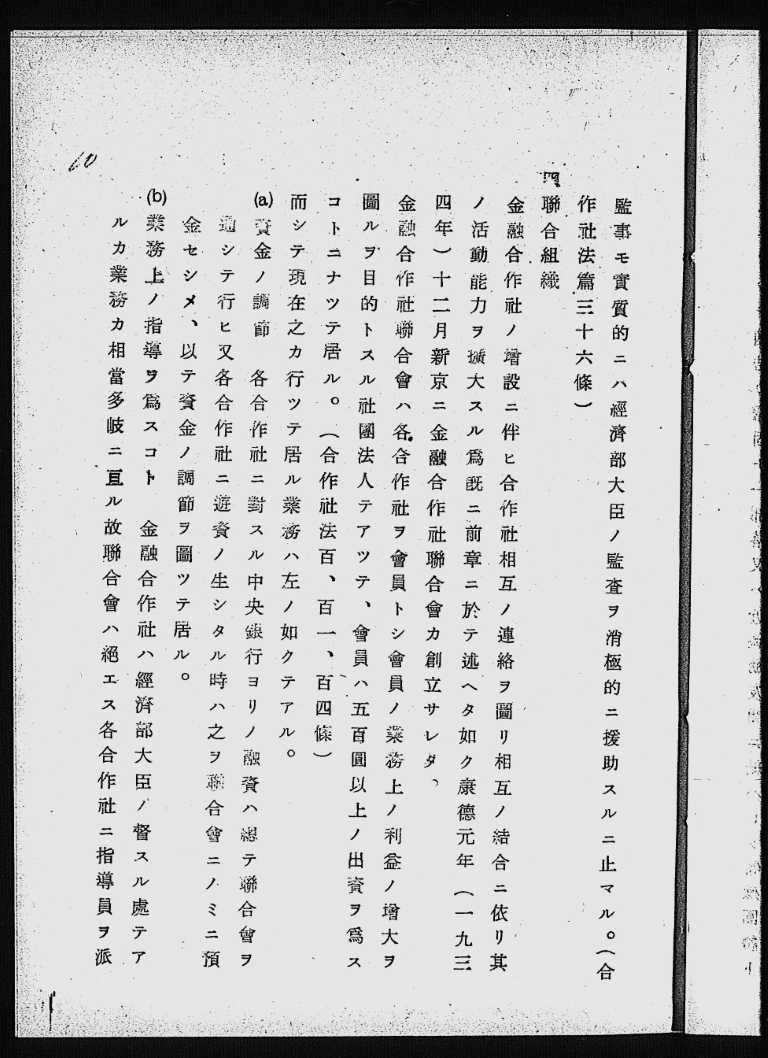 監事モ實質的ニハ經濟部大臣ノ監査ヲ消極的ニ援助スルニ止マル。(合
作社法篇三十六條)
四 聯合組織
金融合作社ノ增設ニ伴ヒ合作社相互ノ連絡ヲ圖リ相互ノ結合ニ依リ其
ノ活動能力ヲ擴大スル爲既ニ前章ニ於テ述ヘタ如ク康德元年(一九三
四年)十二月新京ニ金融合作社聯合會カ創立サレタ、
金融合作社聯合會ハ各合作社ヲ會員トシ會員ノ業務上ノ利益ノ增大ヲ
圖ルヲ目的トスル社團法人テアツテ、會員ハ五百圓以上ノ出資ヲ爲ス
コトニナツテ居ル。(合作社法百、百一、百四條)
而シテ現在之カ行ツテ居ル業務ハ左ノ如クテアル。
(a) 資金ノ調節 各合作社ニ對スル中央銀行ヨリノ融資ハ總テ聯合會ヲ
通シテ行ヒ又各合作社ニ遊資ノ生シタル時ハ之ヲ聯合會ニノミニ預
金セシメ、以テ資金ノ調節ヲ圖ツテ居ル。
(b) 業務上ノ指導ヲ爲スコト 金融合作社ハ經濟部大臣ノ督スル處テア
ルカ業務カ相當多岐ニ亘ル故聯合會ハ絕エス各合作社ニ指導員ヲ派
10